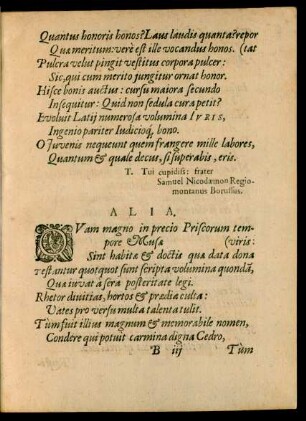 Quantus honoris honos? Laus laudis quanta? repor
Qua meritum: verè est ille vocandus honos. (tat
Pulcra velut pingit vestitus corpora pulcer:
Sic, qui cum merito jungitur ornat honor.
Hisce bonis auctus: cursu maiora secundo
Insequitur: Quid non sedula cura petit?
Evoluit Latij numerosa volumina IVRIS,
Ingenio pariter Iudicioq́; bono.
O Juvenis nequeunt quem frangere mille labores,
Quantum & quale decus, si superabis, eris.
T. Tui cupidiss: frater
Samuel Nicodæmon Regio-
montanus Borussus.
ALIA.
QVam magno in precio Priscorum tem-
pore Musæ (viris:
Sint habitæ & doctis quæ data dona
Testantur quotquot sunt scripta volumina quondã,
Quæ iuvat à sera posteritate legi.
Rhetor divitias, hortos & prædia culta:
Vates pro versu multa talenta tulit.
Tùm fuit illius magnum & memorabile nomen,
Condere qui potuit carmina digna Cedro,
B iij Tùm